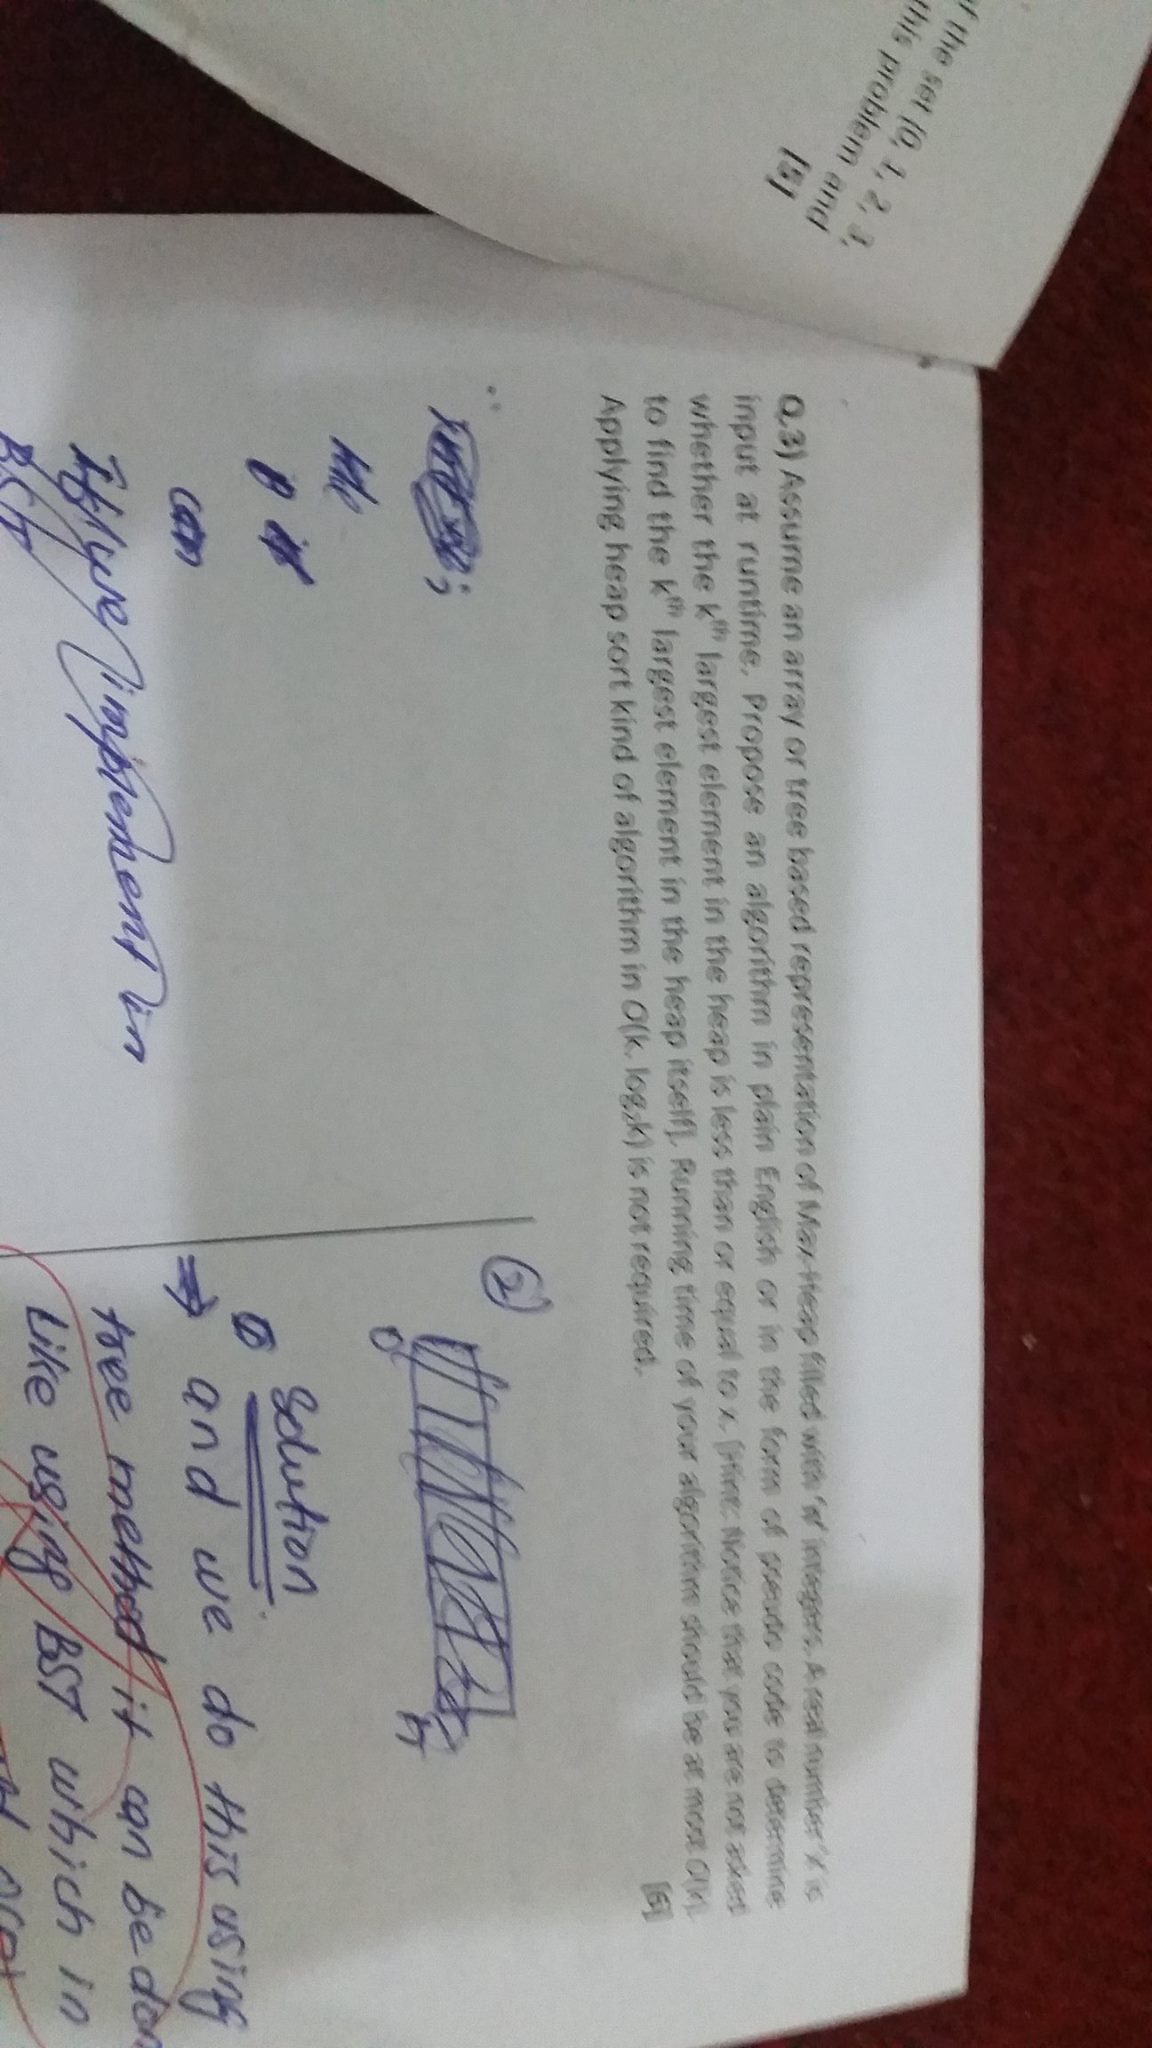 f the set {0, 1, 2, 3,
this problem and
[5]
Q.3) Assume an array or tree based representation of Max-Heap filled with 'n' integers. A real number 'x' is
input at runtime. Propose an algorithm in plain English or in the form of pseudo code to determine
whether the kth largest element in the heap is less than or equal to x. [Hint: Notice that you are not asked
to find the kth largest element in the heap itself]. Running time of your algorithm should be at most O(k).
Applying heap sort kind of algorithm in O(k. log2k) is not required.
[5]
can
implement in
2
Solution
⇒ and we do this using
tree method it can be don
Like using BST which in